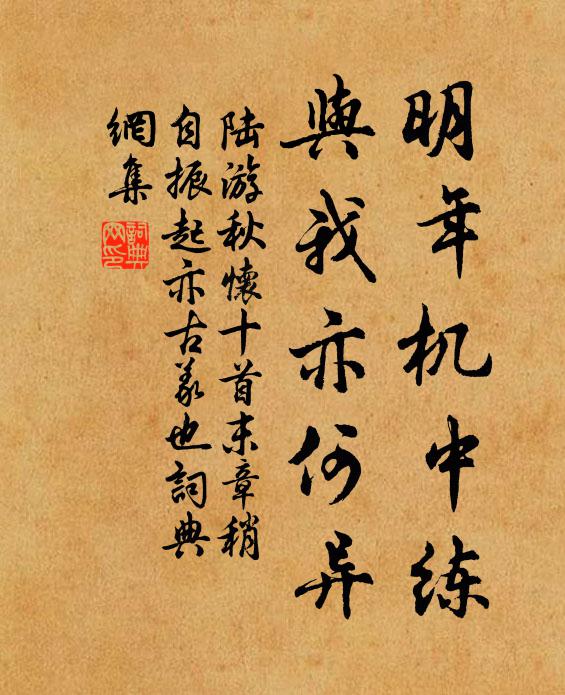 明年机中练
與我亦何异
陆游秋懷十首末章稍
自振起亦古義也詞典
網集
詞典
网印